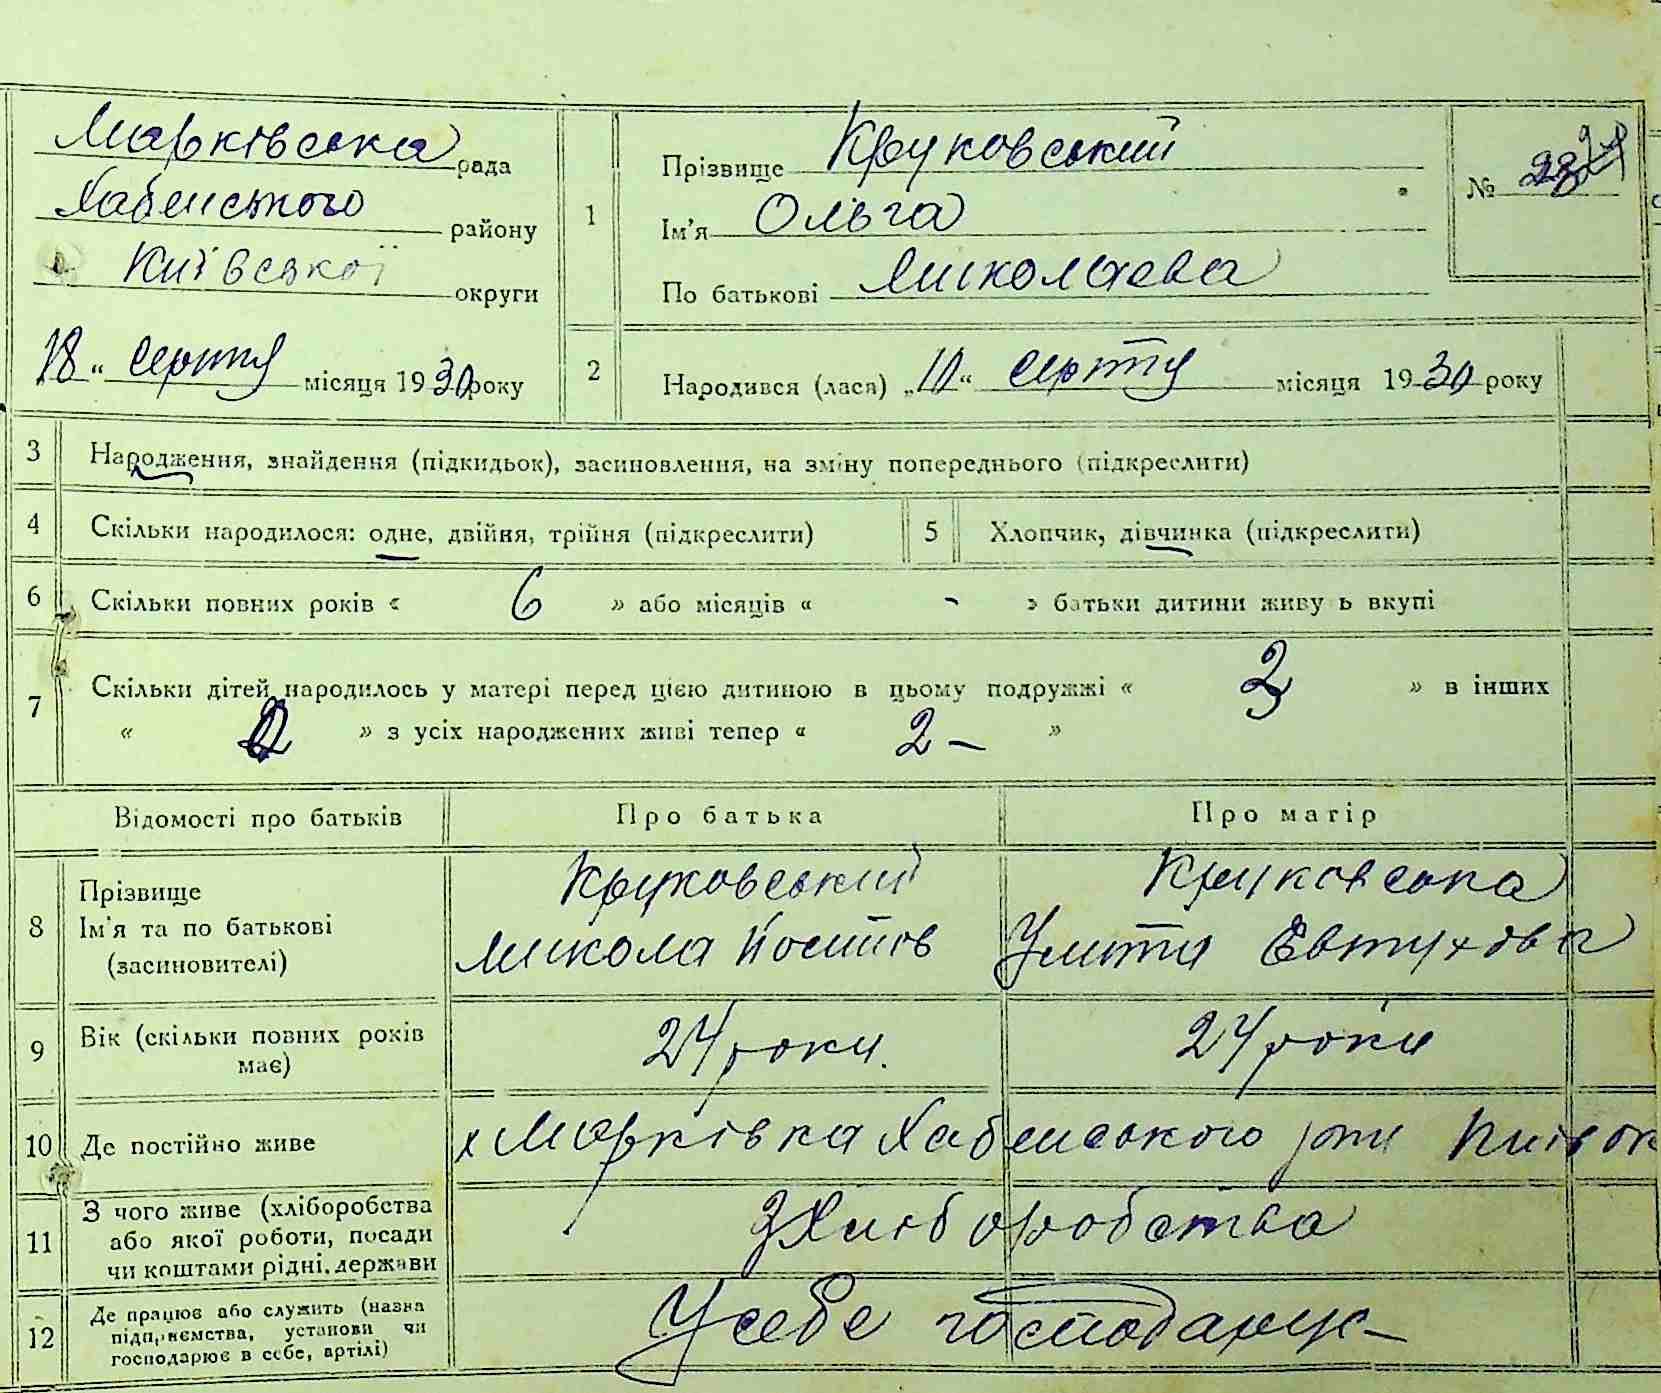 Марківська рада
Хабенського району
Київської округи
18 " серпня місяця 1930 року
1
Прізвище Круковський
Ім'я Ольга
По батькові Миколаєва
№ 28
2
Народився (лася) „10" серпня місяця 1930 року
3 Народження, знайдення (підкидьок), засиновлення, на зміну попереднього (підкреслити)
4 Скільки народилося: одне, двійня, трійня (підкреслити) 5 Хлопчик, дівчинка (підкреслити)
6 Скільки повних років « 6 » або місяців « - » батьки дитини живу ь вкупі
7 Скільки дітей народилось у матері перед цією дитиною в цьому подружжі « 2 » в інших
« » з усіх народжених живі тепер « 2 – »
Відомості про батьків Про батька Про матір
8 Прізвище Круковський Круковська
Ім'я та по батькові Микола Йосипов Улита Евтухова
(засиновителі)
9 Вік (скільки повних років має) 24 роки. 24 роки
10 Де постійно живе х Марківка Хабенського рни Київ ок
11 З чого живе (хліборобства або якої роботи, посади чи коштами рідні, держави З Хліборобства
12 Де працює або служить (назва підприємства, установи чи господарює в себе, артілі) У себе господарує